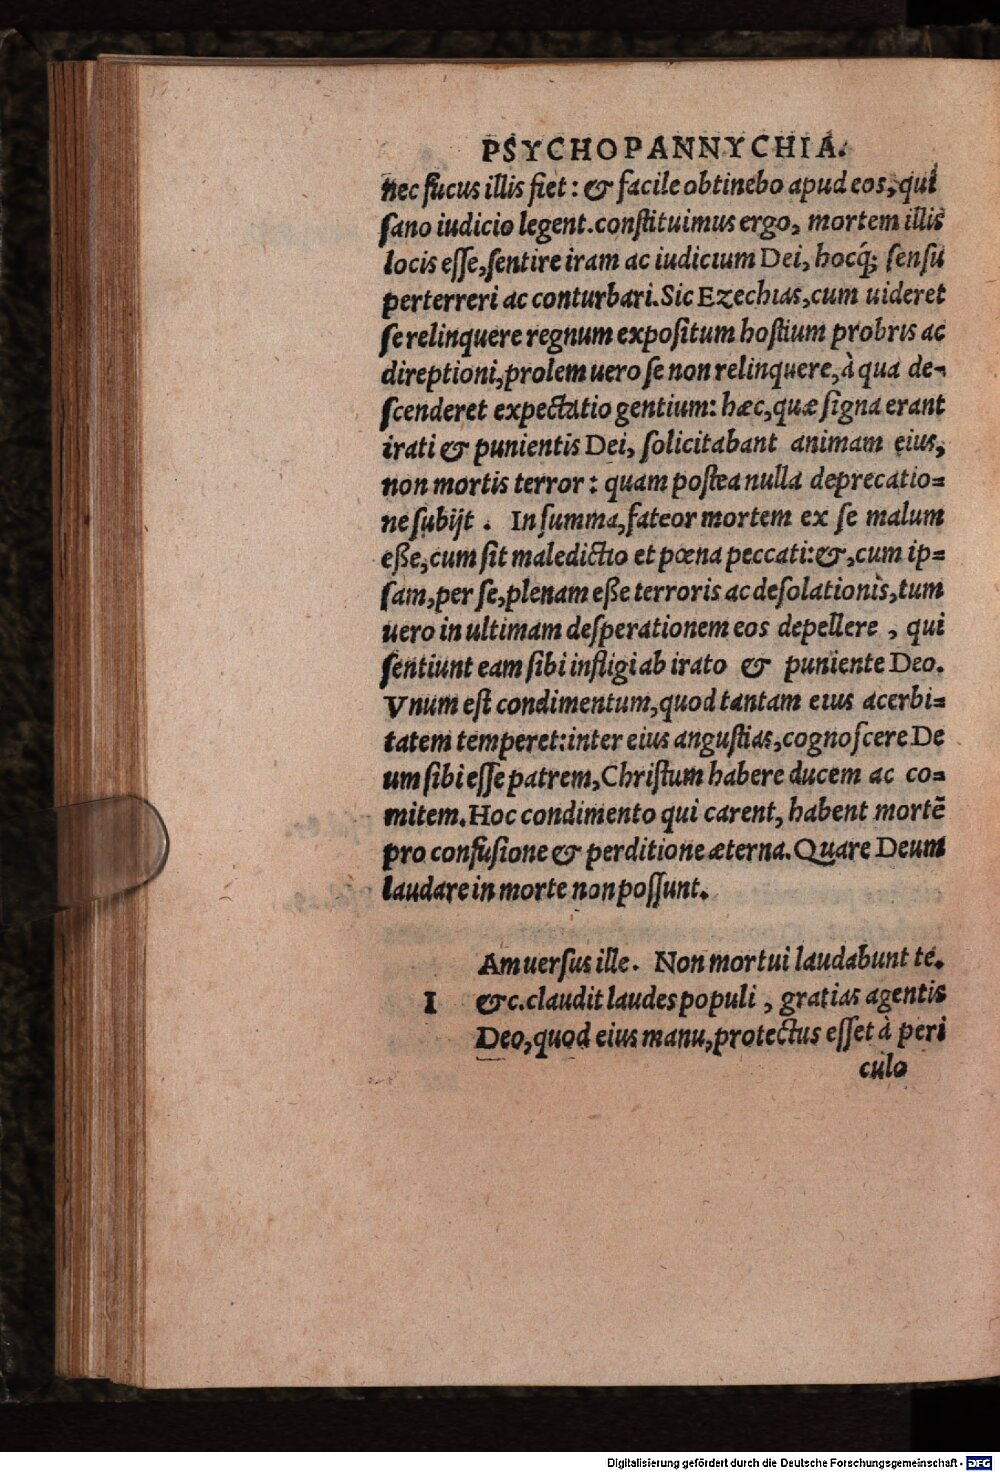 PSYCHOPANNYCHIA.
nec fucus illis fiet: & facile obtinebo apud eos, qui
ſano iudicio legent. conſtituimus ergo, mortem illis
locis eſſe, ſentire iram ac iudicium Dei, hocq́; ſenſu
perterreri ac conturbari. Sic Ezechias, cum uideret
ſe relinquere regnum expoſitum hoſtium probris ac
direptioni, prolem uero ſe non relinquere, à qua de-
ſcenderet expectatio gentium: hæc, quæ ſigna erant
irati & punientis Dei, ſolicitabant animam eius,
non mortis terror: quam poſtea nulla deprecatio=
ne ſubijt. In ſumma, fateor mortem ex ſe malum
eße, cum ſit maledictio et pœna peccati: &, cum ip=
ſam, per ſe, plenam eße terroris ac deſolationis, tum
uero in ultimam deſperationem eos depellere, qui
ſentiunt eam ſibi infligi ab irato & puniente Deo.
Vnum eſt condimentum, quod tantam eius acerbi=
tatem temperet: inter eius anguſtias, cognoſcere De
um ſibi eſſe patrem, Chriſtum habere ducem ac co=
mitem. Hoc condimento qui carent, habent mortẽ
pro confuſione & perditione æterna. Quare Deum
laudare in morte non poſſunt.
Am uerſus ille. Non mortui laudabunt te.
I &c. claudit laudes populi, gratias agentis
Deo, quod eius manu, protectus eſſet à peri
culo
Digitalisierung gefördert durch die Deutsche Forschungsgemeinschaft - DFG